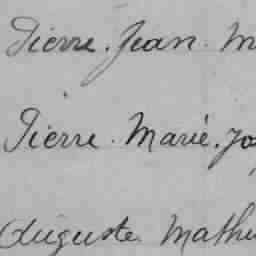 Pierre. Jean. M
Pierre. Marié. Jo
Auguste Mathu